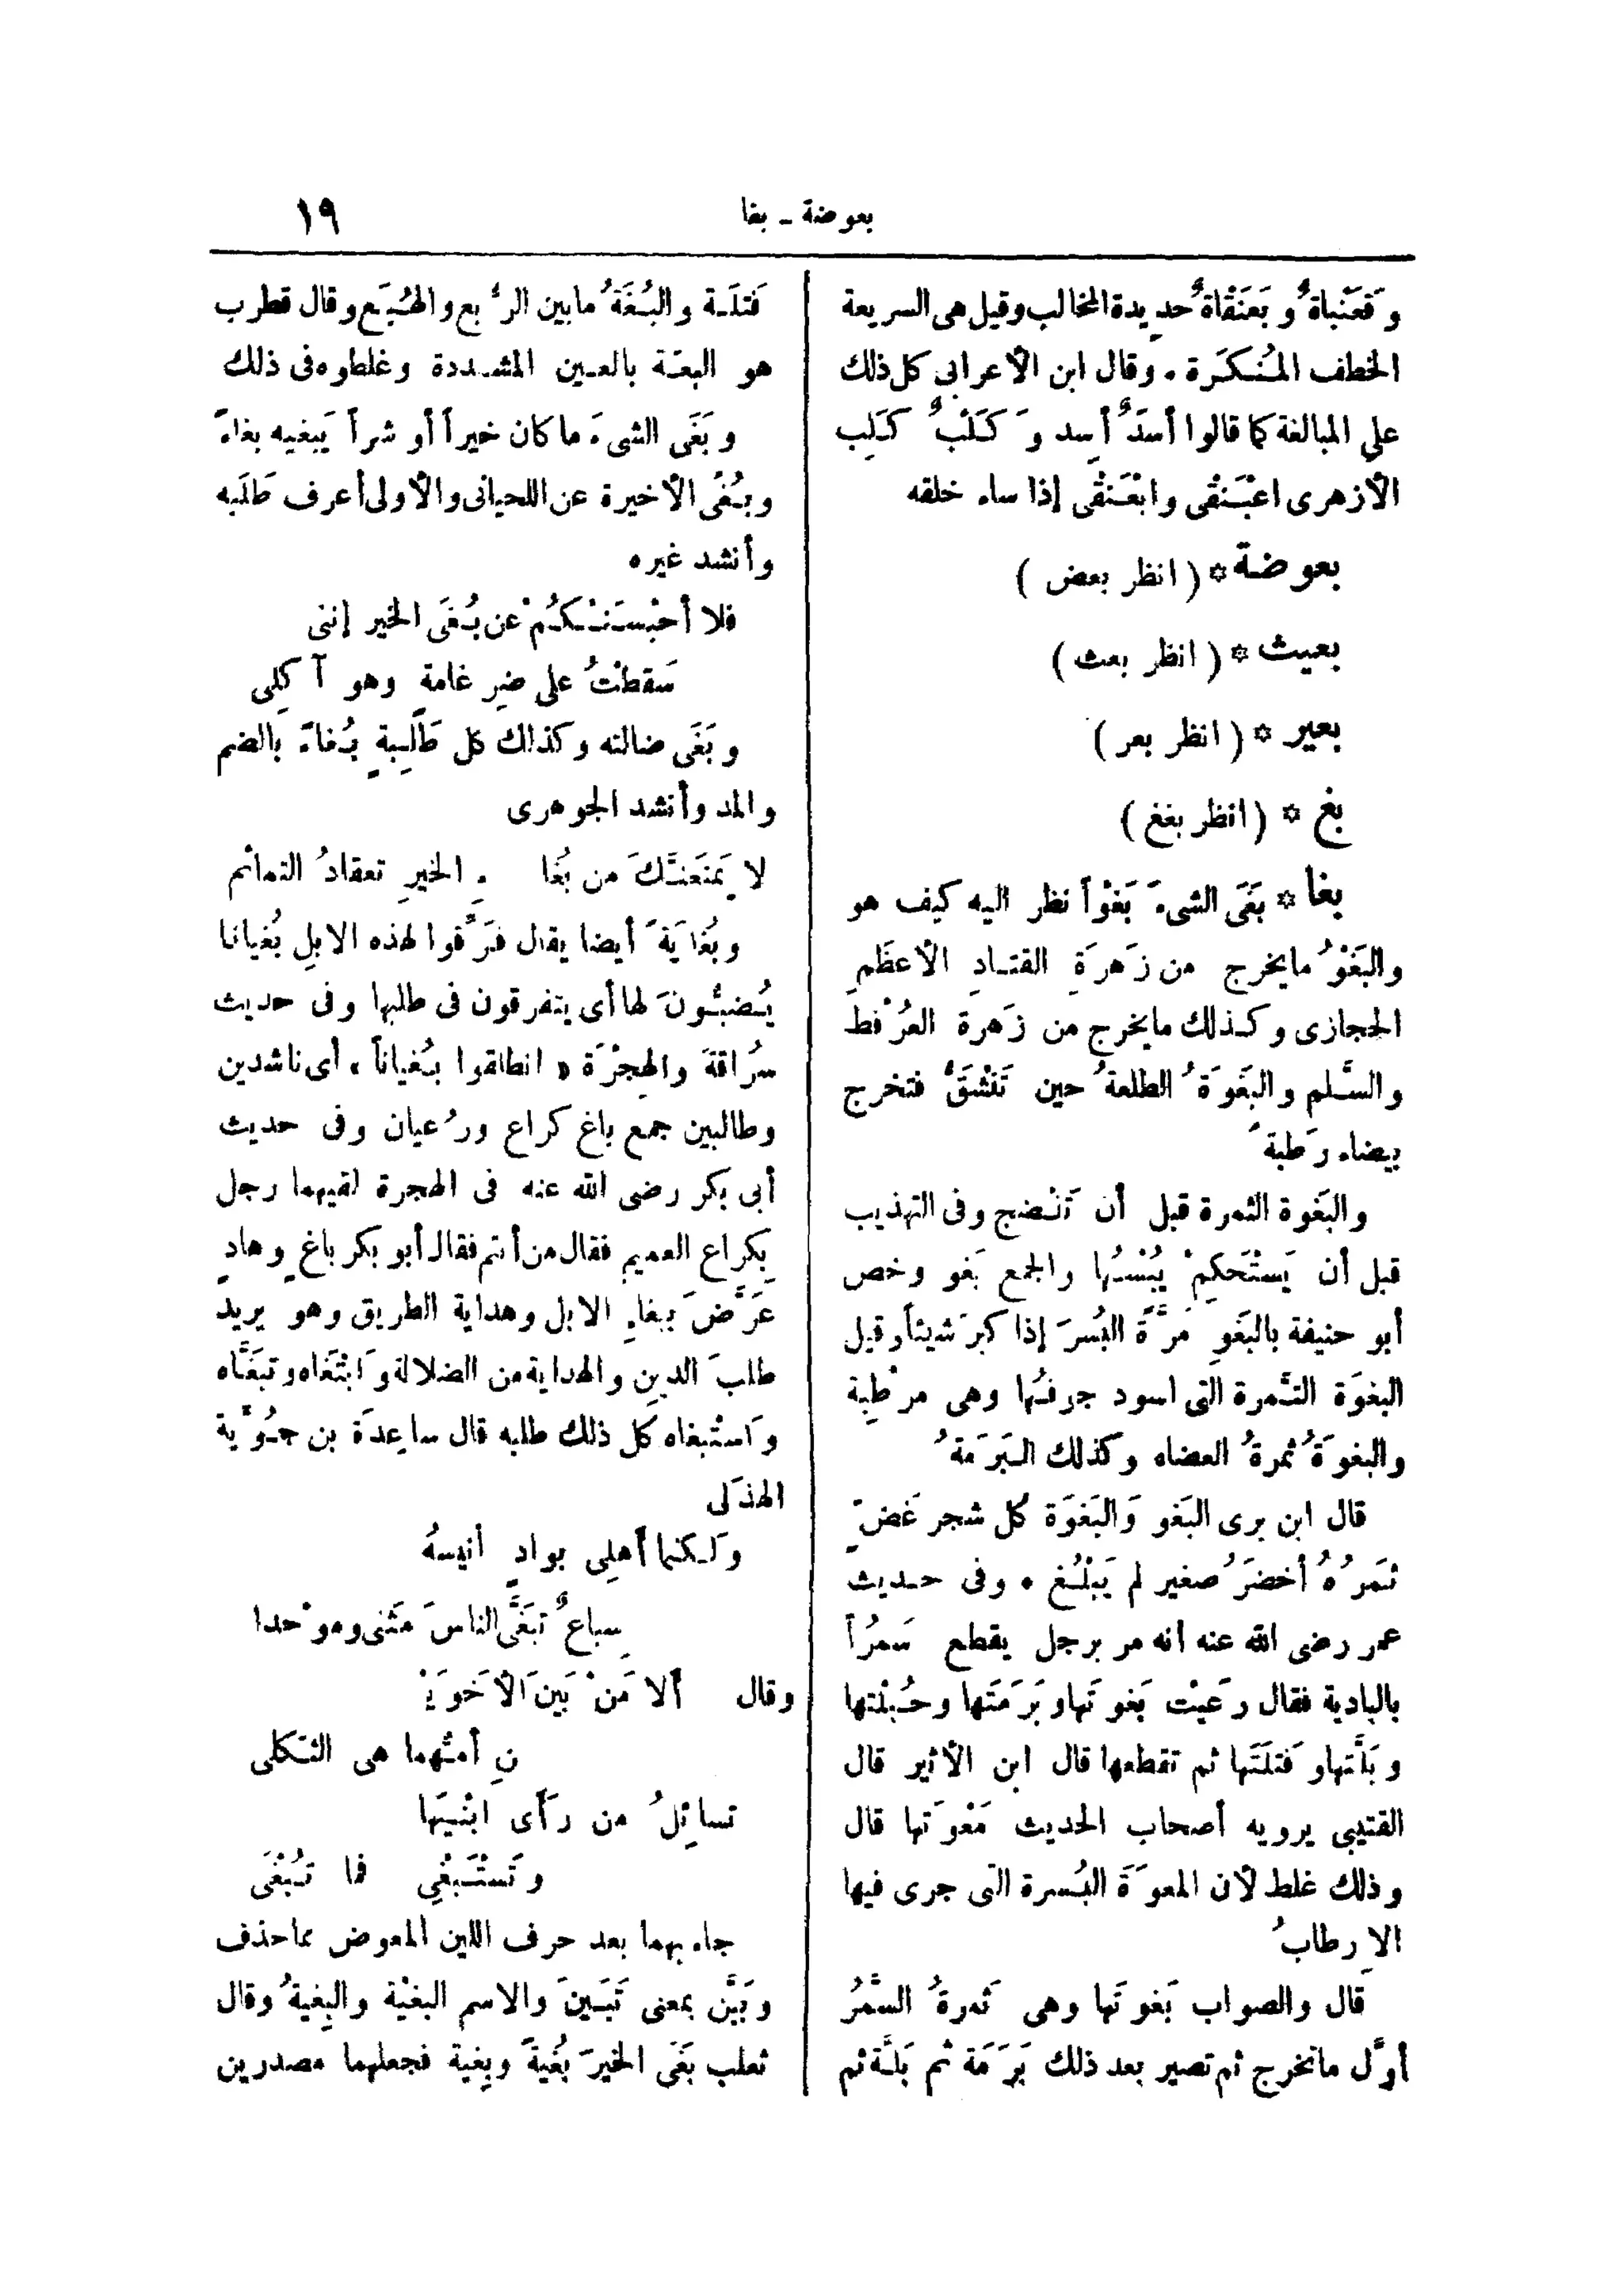 بعوضة - بغا
١٩
وقَعَنْباةٌ وبَعَنْقاةٌ حديدة المخالب وقيل هى السريعة
الخطف المُنْكَرَة . وقال ابن الأعرابى كل ذلك
على المبالغة كما قالوا أسَدٌ أسِد وَكَلْبٌ كَلِب
الأزهرى اعْبَنْقى وابْعَنْقى إذا ساء خلقه
بعوضة * ( انظر بعض )
بعيث * ( انظر بعث )
بعير * ( انظر بعر )
بغ * ( انظر بغغ )
بغا * بَغَى الشىءَ بَغْواً نظر اليه كيف هو
والبَغْوُ ما يخرج من زَهرَةِ القتادِ الأعظَمِ
الحجازى وكذلك ما يخرج من زَهرة العُرْفط
والسَّلم والبَغْوَةُ الطلعةُ حين تَنْشَقُّ فتخرج
بيضاء رَطبةً
والبَغوة الثمرة قبل أن تَنْضج وفى التهذيب
قبل أن يَستَحكِمْ يُبْسُها والجمع بَغو وخص
أبو حنيفة بالبَغوِ مَرَّةَ البُسرَ إذا كبرَ شيئاً وقيل
البغوَة التَّمرة التى اسود جوفُها وهى مرْطِبة
والبغوَةُ ثمرةُ العضاه وكذلك البَرَمَةُ
قال ابن برى البَغو وَالبَغوَة كل شجر غَضٍّ
ثمَرُهُ أخضَرُ صغير لم يَبْلُغ . وفى حديث
عمر رضى الله عنه أنه مر برجل يقطع سَمُراً
بالبادية فقال رعَيْت بَغوتَها وبَرَمَتَها وحُبْلَتها
وبَلَّتها وفتلَتَها ثم تقطعها قال ابن الأثير قال
القتيبى يرويه أصحاب الحديث مَعْوتَها قال
وذلك غلط لأن المعوَةَ البُسرة التى جرى فيها
الإرطابُ
قال والصواب بَغوتَها وهى ثمرةُ السَّمُرُ
أوَّل ما تخرج ثم تصير بعد ذلك بَرَمَة ثم بَلَّة ثم
فَتلَة والبُغَةُ ما بين الرُّبع والهُبَع وقال قطرب
هو البعَّة بالعين المشددة وغلطوه فى ذلك
وبَغَى الشىءَ ما كان خيراً أو شراً يَبغيه بغاءً
وبُغًى الأخيرة عن اللحيانى والأولى أعرف طَلَبه
وأنشد غيره
فلا أحْبِسَنْكُمْ عن بُغَى الخير إننى
سَقطْتُ على ضِرغامةٍ وهو آكِلى
وبَغَى ضالته وكذلك كل طَلِبةٍ بُغاءً بالضم
والمد وأنشد الجوهرى
لا يَمنَعَنَّكَ من بُغا ءِ الخيرِ تعقادُ التمائم
وبُغايَةً أيضا يقال فرِّقوا لهذه الابل بُغيانا
يُضبُّونَ لها أى يتفرقون فى طلبها وفى حديث
سُراقةَ والهِجْرَة « انطلقوا بُغياناً ، أى ناشدين
وطالبين جمع باغ كراع ورُعيان وفى حديث
أبى بكر رضى الله عنه فى الهجرة لقيهما رجل
بكراع العميم فقال من أنتم فقال أبو بكر باغٍ وهادٍ
عَرَّضَ ببغاءِ الابل وهداية الطريق وهو يريد
طلبَ الدين والهداية من الضلالة وَابْتَغاه وتبَغَّاه
وَاستَبغاه كل ذلك طلبه قال ساعِدَة بن جُؤَيَّة
الهذَلى
ولكنما أهلِى بوادٍ أنيسهُ
سِباعٌ تبَغَّى الناسَ مَثنى وموْحدا
وقال ألا مَنْ بَين الأخوَيْ
نِ أمُّهما هى الثكلى
تسائِلُ من رَأى ابْنَيها
وتَستَبغِى فما تُبْغَى
جاء بهما بعد حرف اللين المعوض مما حذف
وبَيَّن بمعنى تَبَيَّنَ والاسم البغْيَة والبِغيةُ وقال
ثعلب بَغَى الخيرَ بُغيةً وبِغية فجعلهما مصدرين